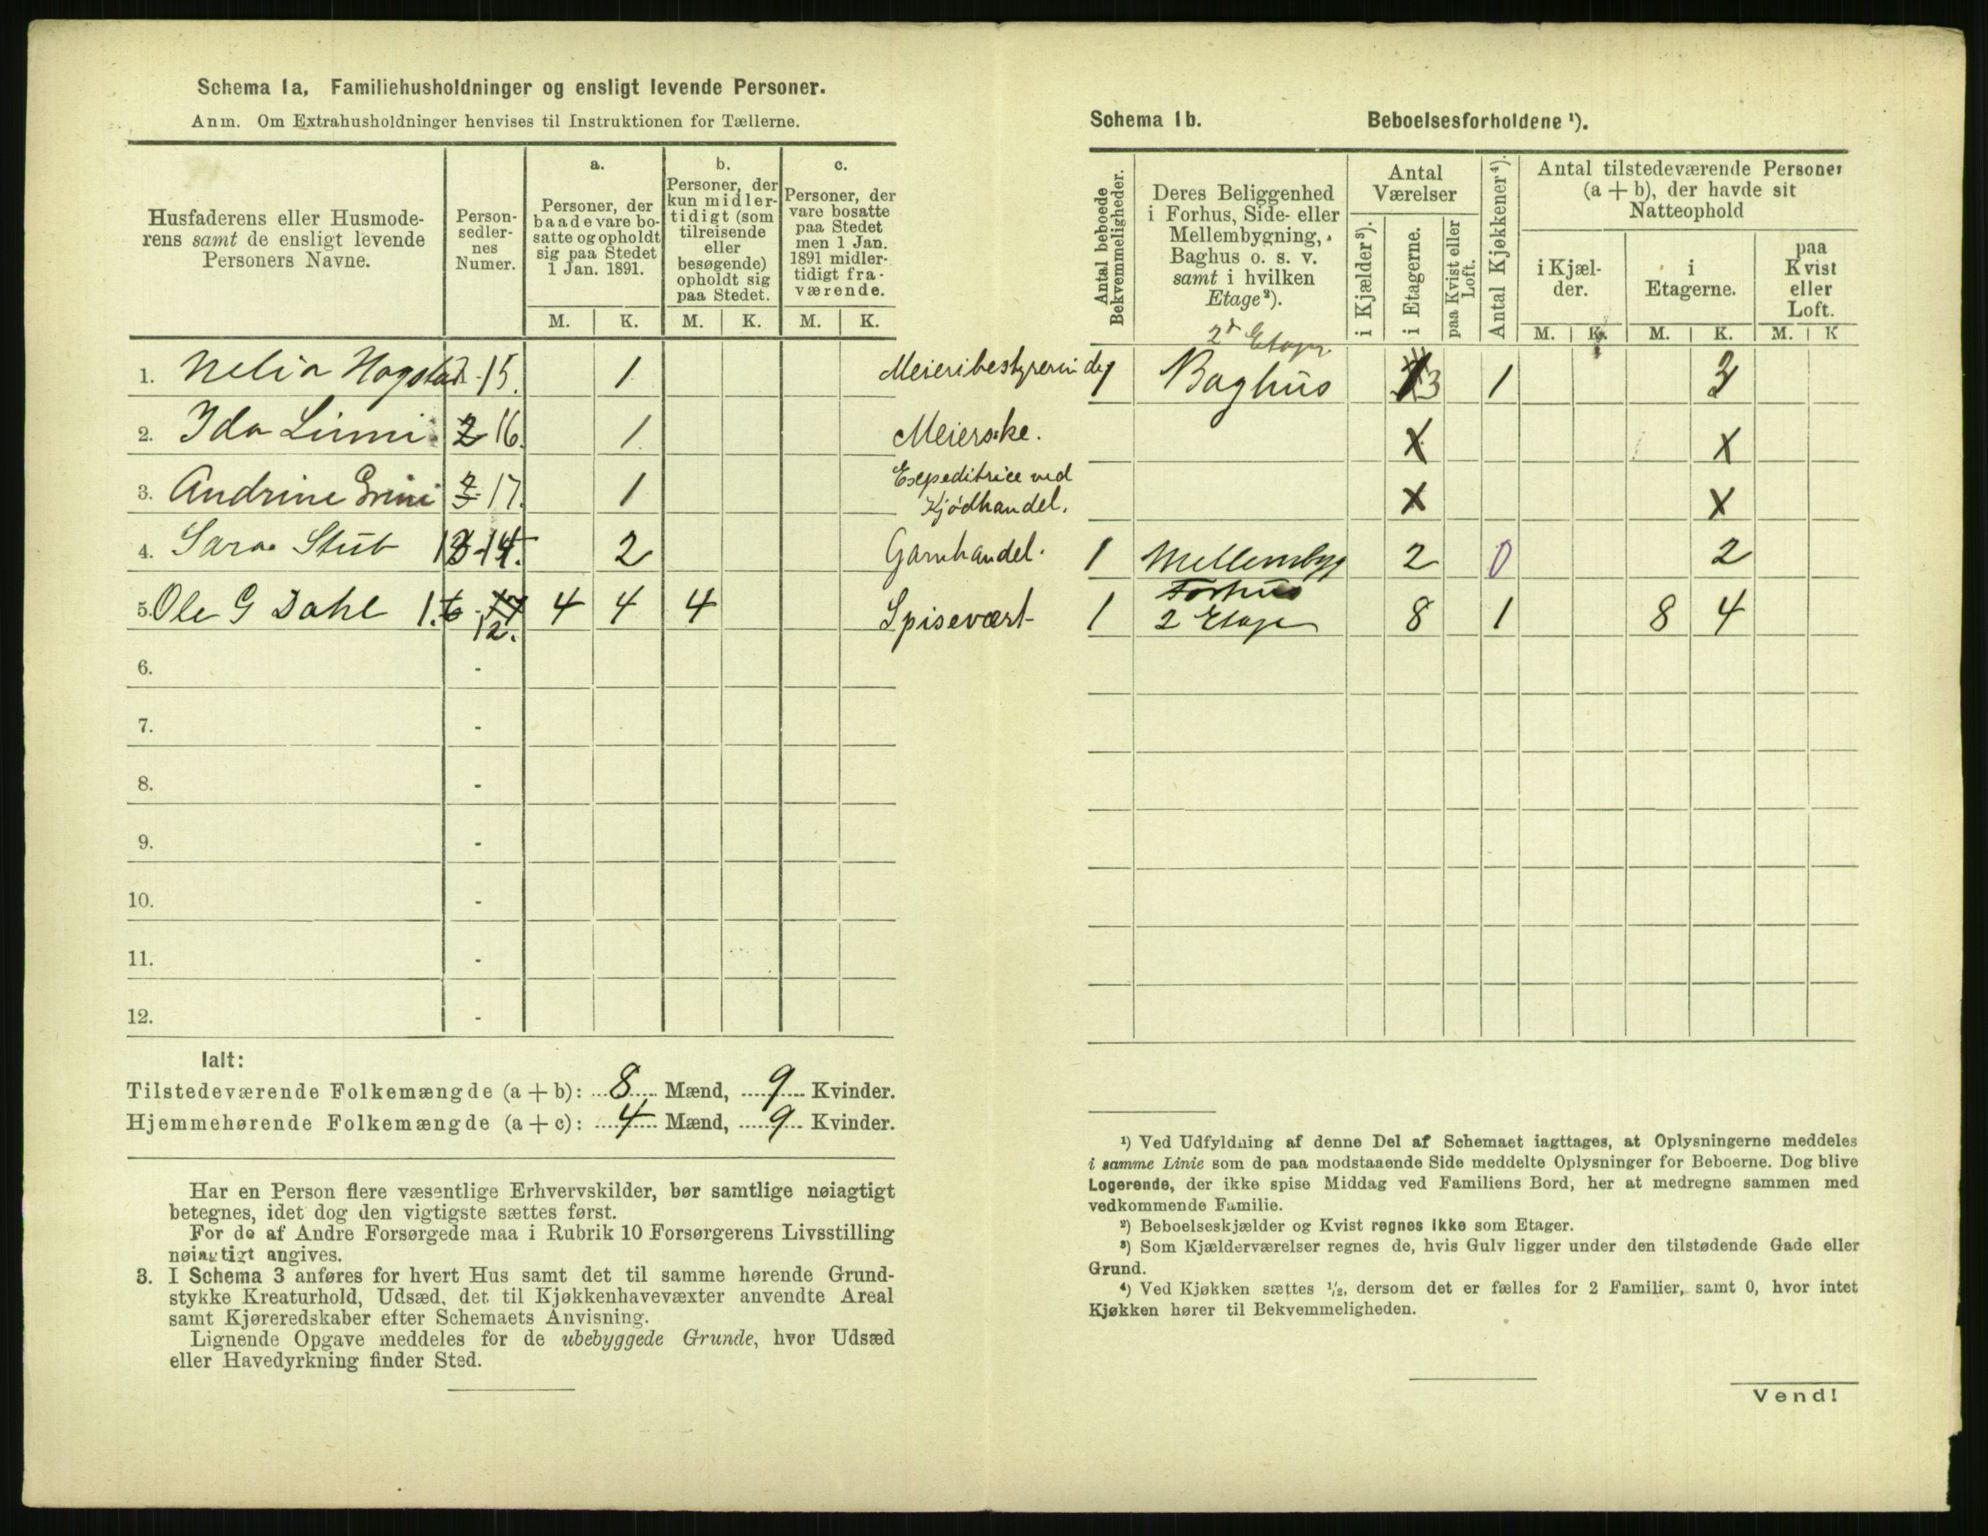 Schema 1a, Familiehusholdninger og ensligt levende Personer.
Anm. Om Extrahusholdninger henvises til Instruktionen for Tællerne.
Husfaderens eller Husmode-
rens samt de ensligt levende
Personers Navne.
Person-
sedler-
nes
Numer.
a.
Personer, der
baade vare bo-
satte og opholdt
sig paa Stedet
1 Jan. 1891.
b.
Personer, der
kun midler-
tidigt (som
tilreisende
eller
besøgende)
opholdt sig
paa Stedet.
c.
Personer, der
vare bosatte
paa Stedet
men 1 Jan.
1891 midler-
tidigt fra-
værende.
M. K. M. K. M. K.
1. Nelia Hogstad 15. 1 Meieribestyrerinde
2. Ida Linni 2 16. 1 Meierske.
3. Andrine Grini 17. 1 Expeditrice ved
Kjødhandel.
4. Sara Stub 14. 2 Garnhandel.
5. Ole G Dahl 1. 4 4 4 Spisevært
12.
6. -
7. -
8. -
9. -
10. -
11. -
12. -
Ialt:
Tilstedeværende Folkemængde (a + b): 8 Mænd, 9 Kvinder.
Hjemmehørende Folkemængde (a + c): 4 Mænd, 9 Kvinder.
Har en Person flere væsentlige Erhvervskilder, bør samtlige nøiagtigt
betegnes, idet dog den vigtigste sættes først.
For de af Andre Forsørgede maa i Rubrik 10 Forsørgerens Livsstilling
nøiagtigt angives.
3. I Schema 3 anføres for hvert Hus samt det til samme hørende Grund-
stykke Kreaturhold, Udsæd, det til Kjøkkenhavevæxter anvendte Areal
samt Kjøreredskaber efter Schemaets Anvisning.
Lignende Opgave meddeles for de ubebyggede Grunde, hvor Udsæd
eller Havedyrkning finder Sted.
Schema 1b. Beboelsesforholdene ¹).
Antal beboede
Bekvemmeligheder.
Deres Beliggenhed
i Forhus, Side- eller
Mellembygning,
Baghus o. s. v.
samt i hvilken
Etage²).
Antal
Værelser
i Kjælder³).
i Etagerne.
paa Kvist eller
Loft.
Antal Kjøkkener⁴).
Antal tilstedeværende Personer
(a + b), der havde sit
Natteophold
i Kjæl-
der.
i
Etagerne.
paa
Kvist
eller
Loft.
M. K. M. K. M. K
2d Etage
1 Baghus 3 1 3
X X
X X
1 Mellembyg 2 0 2
Forhus
1 2 Etage 8 1 8 4
¹) Ved Udfyldning af denne Del af Schemaet iagttages, at Oplysningerne meddeles
i samme Linie som de paa modstaaende Side meddelte Oplysninger for Beboerne. Dog blive
Logerende, der ikke spise Middag ved Familiens Bord, her at medregne sammen med
vedkommende Familie.
²) Beboelseskjælder og Kvist regnes ikke som Etager.
³) Som Kjælderværelser regnes de, hvis Gulv ligger under den tilstødende Gade eller
Grund.
⁴) Ved Kjøkken sættes ½, dersom det er fælles for 2 Familier, samt 0, hvor intet
Kjøkken hører til Bekvemmeligheden.
Vend!